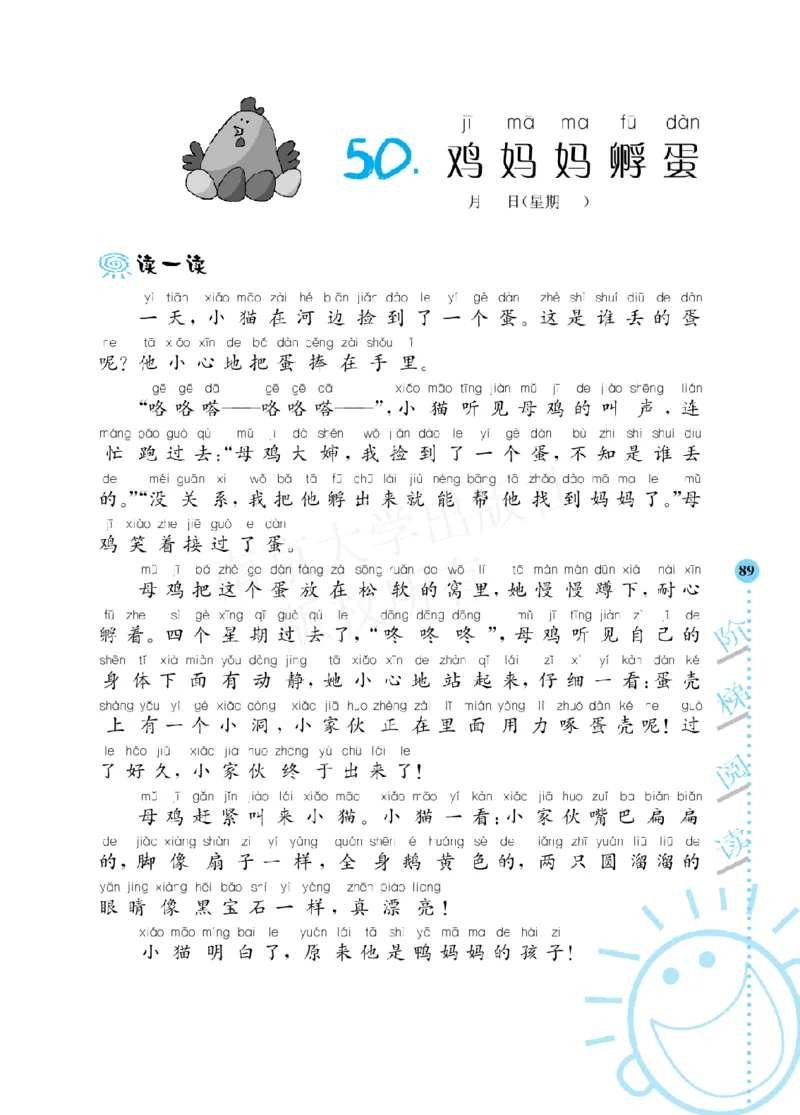 jī mā ma fū dàn
50. 鸡妈妈孵蛋
月 日(星期 )
读一读
yì tiān xiǎo māo zài hé biān jiǎn dào le yí gè dàn zhè shì shuí diū de dàn
一天,小猫在河边捡到了一个蛋。这是谁丢的蛋
ne tā xiǎo xīn de bǎ dàn pěng zài shǒu lǐ
呢?他小心地把蛋捧在手里。
gē gē dā gē gē dā xiǎo māo tīng jiàn mǔ jī de jiào shēng lián
“咯咯嗒——咯咯嗒——”,小猫听见母鸡的叫声,连
máng pǎo guò qù mǔ jī dà shěn wǒ jiǎn dào le yí gè dàn bù zhī shì shuí diū
忙跑过去:“母鸡大婶,我捡到了一个蛋,不知是谁丢
de méi guān xi wǒ bǎ tā fū chū lái jiù néng bāng tā zhǎo dào mā ma le mǔ
的。”“没关系,我把他孵出来就能帮他找到妈妈了。”母
jī xiào zhe jiē guò le dàn
鸡笑着接过了蛋。
mǔ jī bǎ zhè ge dàn fàng zài sōng ruǎn de wō lǐ tā màn màn dūn xià nài xīn
母鸡把这个蛋放在松软的窝里,她慢慢蹲下,耐心
fū zhe sì gè xīng qī guò qù le dōng dōng dōng mǔ jī tīng jiàn zì jǐ de
孵着。四个星期过去了,“咚咚咚”,母鸡听见自己的
shēn tǐ xià miàn yǒu dòng jing tā xiǎo xīn de zhàn qǐ lái zǐ xì yí kàn dàn ké
身体下面有动静,她小心地站起来,仔细一看:蛋壳
shàng yǒu yí gè xiǎo dòng xiǎo jiā huo zhèng zài lǐ miàn yòng lì zhuó dàn ké ne guò
上有一个小洞,小家伙正在里面用力啄蛋壳呢!过
le hǎo jiǔ xiǎo jiā huo zhōng yú chū lái le
了好久,小家伙终于出来了!
mǔ jī gǎn jǐn jiào lái xiǎo māo xiǎo māo yí kàn xiǎo jiā huo zuǐ ba biǎn biǎn
母鸡赶紧叫来小猫。小猫一看:小家伙嘴巴扁扁
de jiǎo xiàng shàn zi yí yàng quán shēn é huáng sè de liǎng zhī yuán liū liū de
的,脚像扇子一样,全身鹅黄色的,两只圆溜溜的
yǎn jing xiàng hēi bǎo shí yí yàng zhēn piào liang
眼睛像黑宝石一样,真漂亮!
xiǎo māo míng bai le yuán lái tā shì yā mā ma de hái zi
小猫明白了,原来他是鸭妈妈的孩子!
89
阶梯阅读
南京大学出版社
版权所有